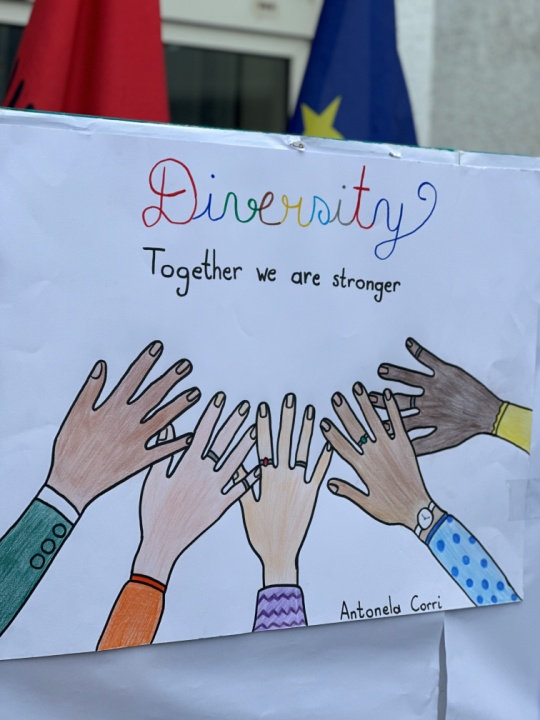 Diversity
Together we are stronger
Antonela Corri